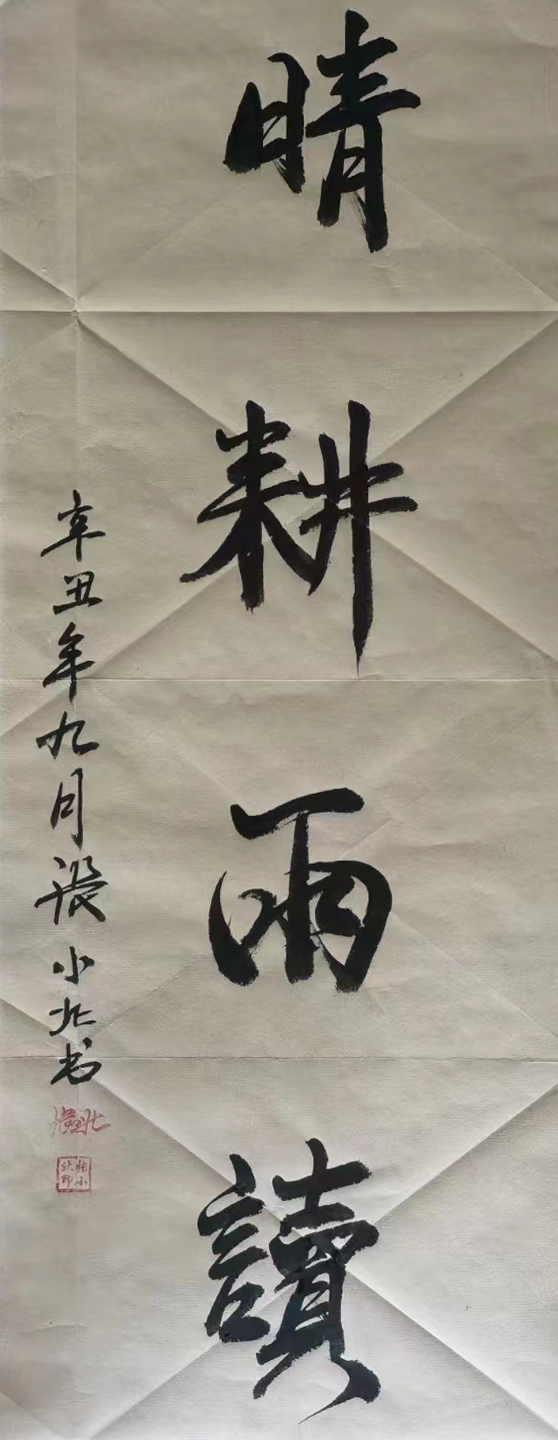 晴耕雨讀
辛丑年九月 小北书